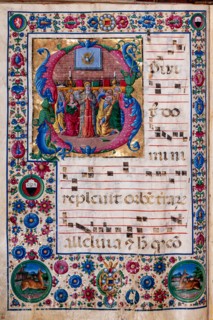 Spiri
tus do
mini
repleuit orbē terrar
alleluia